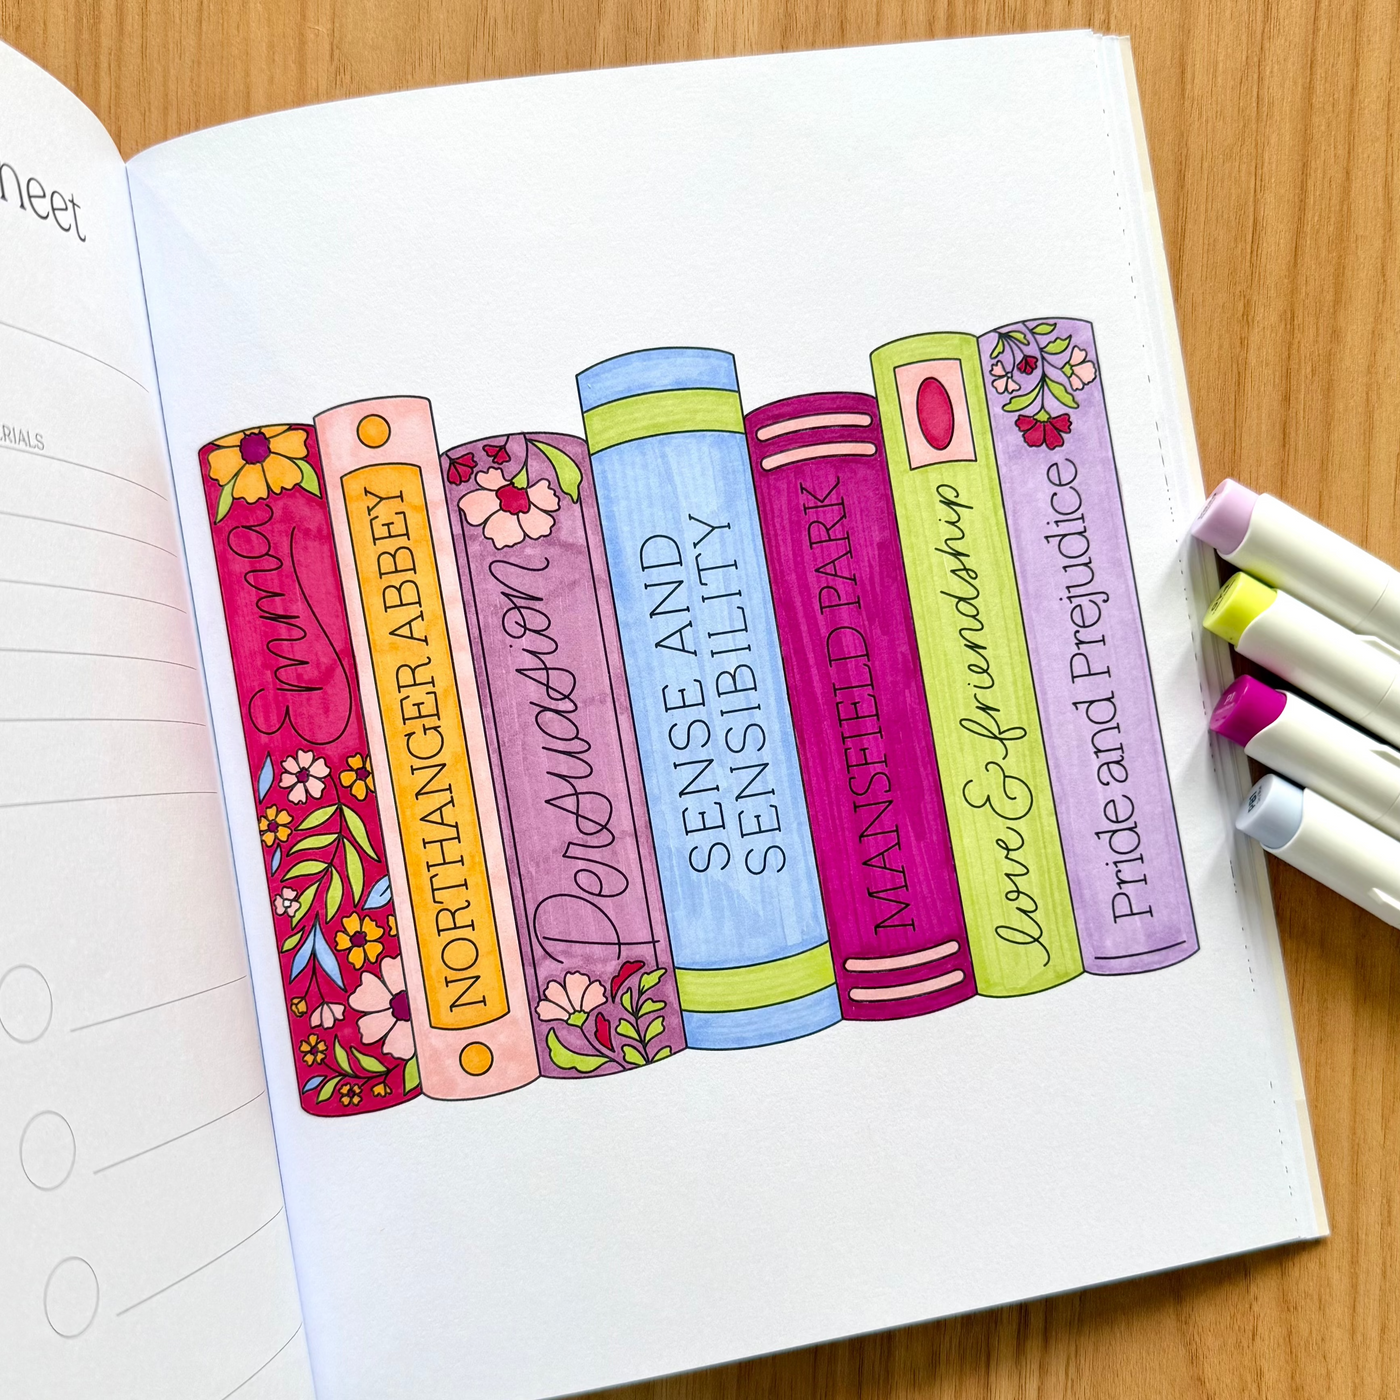 neet
RIALS
Emma
NORTHANGER ABBEY
Persuasion
SENSE AND
SENSIBILITY
MANSFIELD PARK
love & friendship
Pride and Prejudice